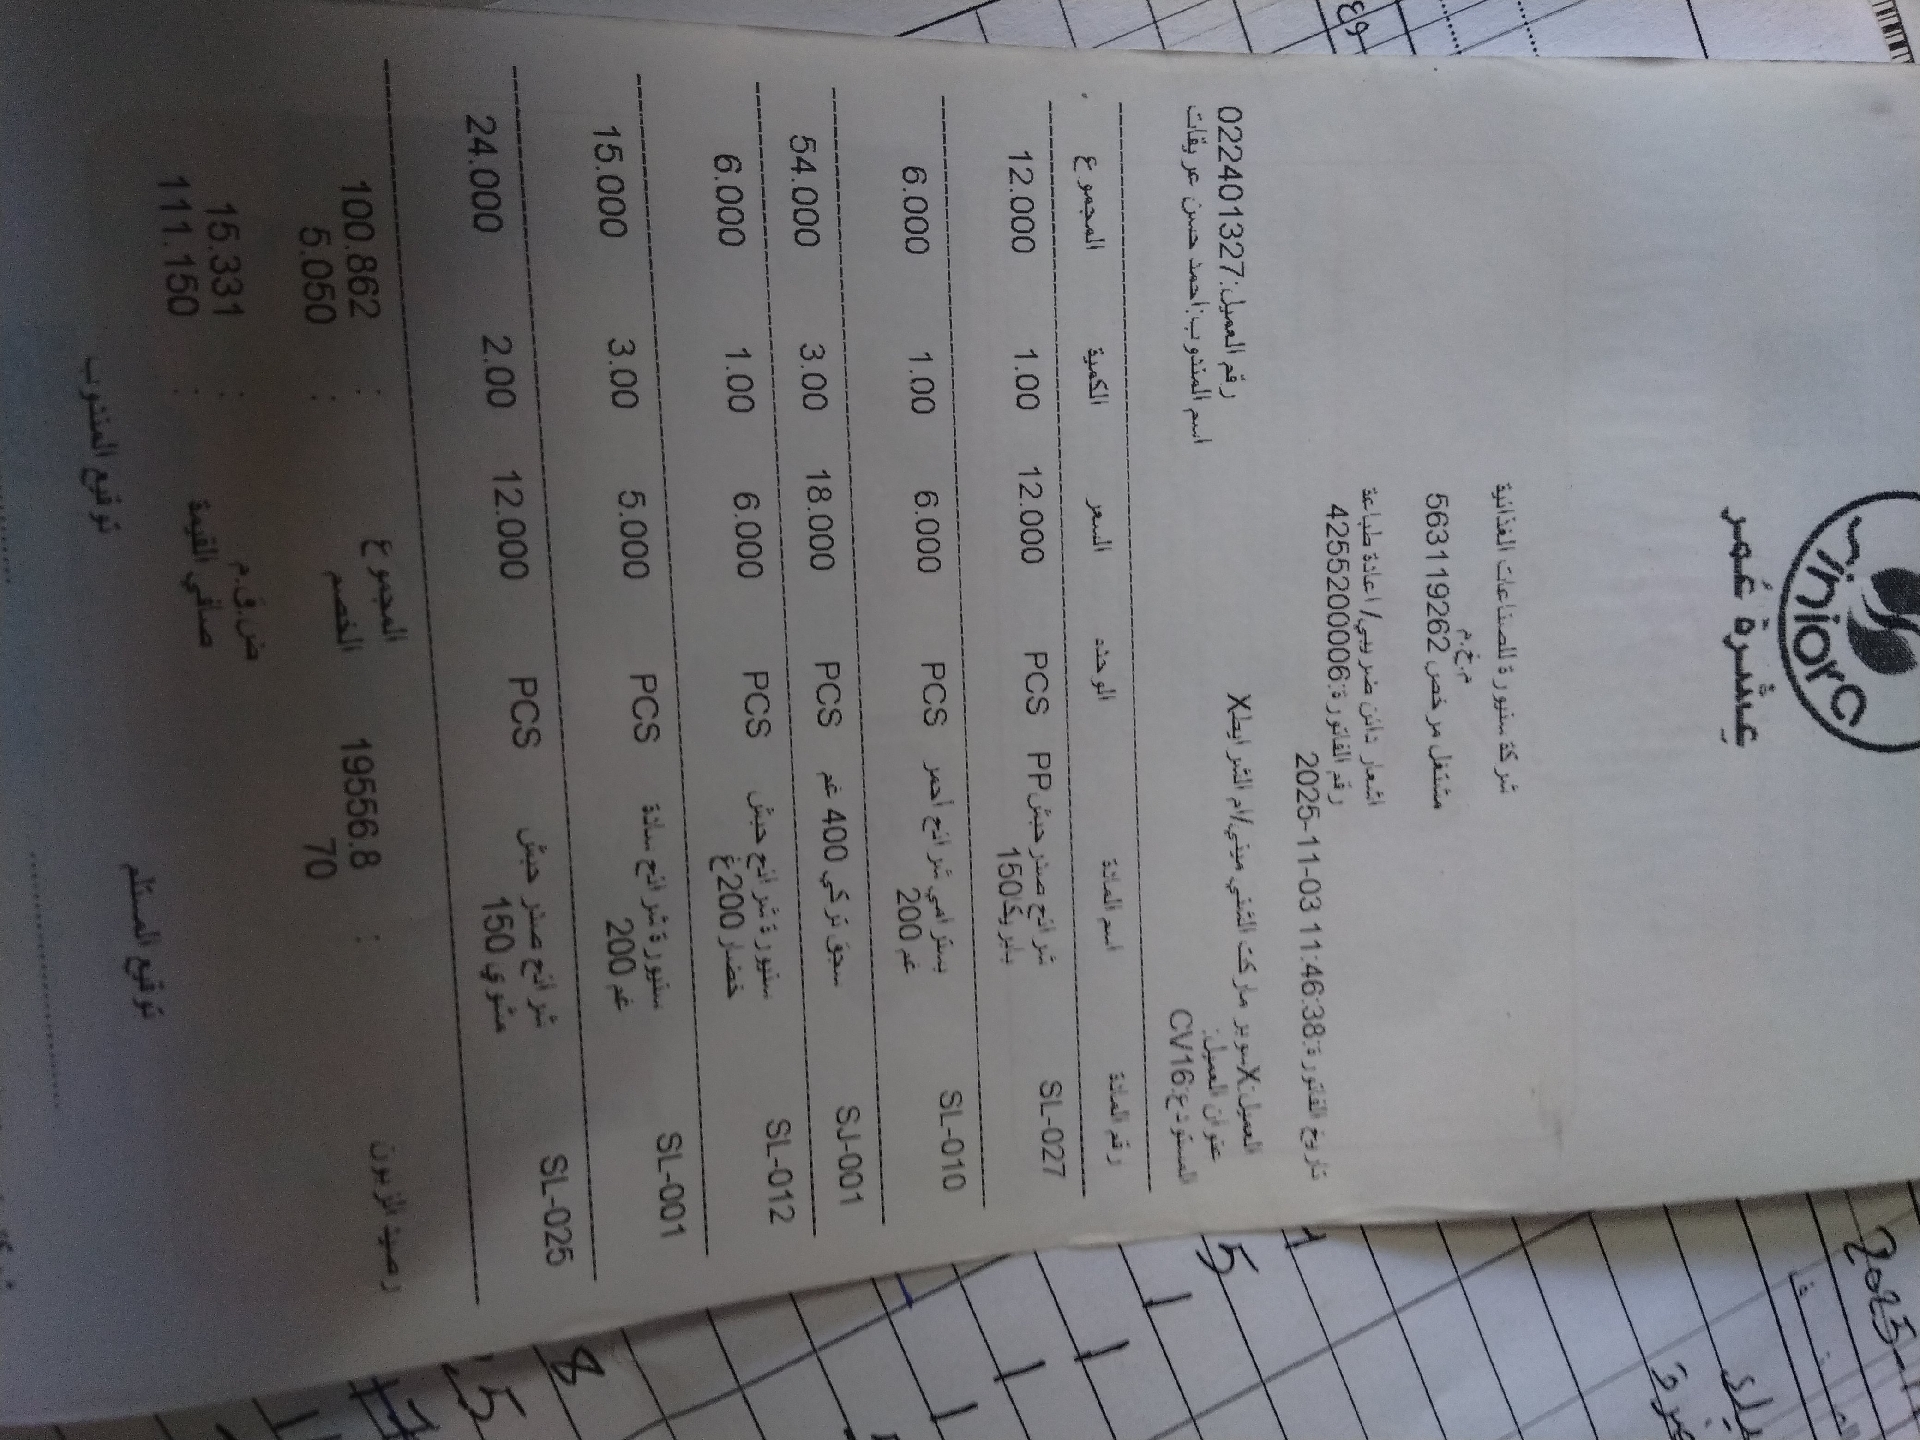 Siniora
عِشْرة عُمر
شركة سنيورة للصناعات الغذائية
م.خ.م
مشتغل مرخص 563119262
اشعار دائن ضريبي/اعادة طباعة
رقم الفاتورة:4255200006
تاريخ الفاتورة:2025-11-03 11:46:38
العميل:Xسوبر ماركت التقي ميني/ام الشرايطX
رقم العميل:022401327
عنوان العميل:
المستودع:CV16
اسم المندوب:احمد حسن عريقات
رقم المادة اسم المادة الوحده السعر الكمية المجموع
SL-027 شرائح صدر حبش PP PCS 12.000 1.00 12.000
بابريكا150
SL-010 بسترامي شرائح احمر PCS 6.000 1.00 6.000
200 غم
SJ-001 سجق تركي 400 غم PCS 18.000 3.00 54.000
SL-012 سنيورة شرائح حبش PCS 6.000 1.00 6.000
خضار 200غ
SL-001 سنيورة شرائح سادة PCS 5.000 3.00 15.000
200 غم
SL-025 شرائح صدر حبش PCS 12.000 2.00 24.000
مشوي 150
رصيد الزبون : 19556.8 المجموع : 100.862
70 الخصم : 5.050
ض.ق.م : 15.331
صافي القيمة : 111.150
توقيع المستلم توقيع المندوب
2025
5
8
5